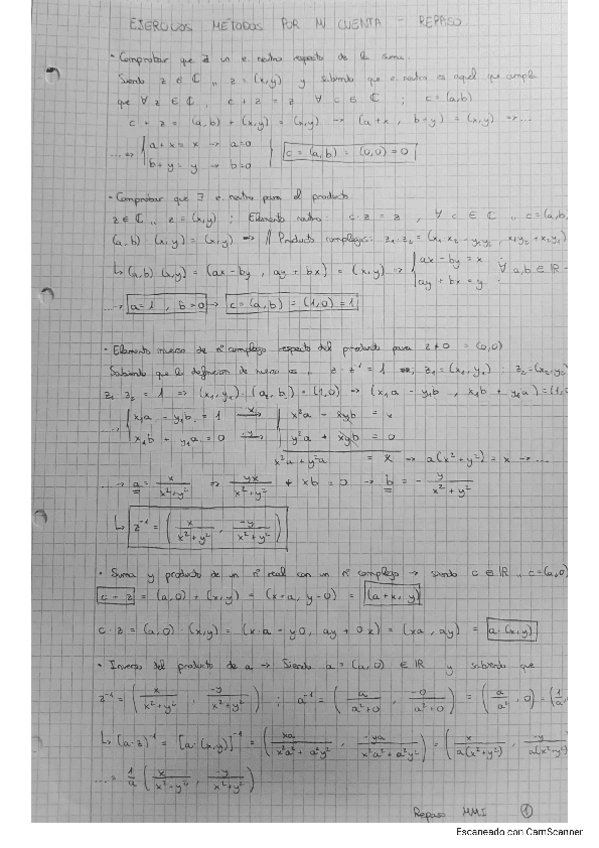 EJERCICIOS METODOS POR MI CUENTA - REPASO
• Comprobar que ∃ un e. neutro respecto de la suma.
Siendo z ∈ ℂ ,, z = (x,y) y sabiendo que e. neutro es aquel que cumple
que ∀ z ∈ ℂ, c + z = z ∀ c ∈ ℂ ; c = (a,b)
c + z = (a,b) + (x,y) = (x,y) → (a+x, b+y) = (x,y) → ...
...→ { a + x = x → a=0
b + y = y → b=0 } c = (a,b) = (0,0) = 0
• Comprobar que ∃ e. neutro para el producto
z ∈ ℂ ,, z = (x,y) ; Elemento neutro: c · z = z , ∀ c ∈ ℂ ,, c = (a,b
(a,b) · (x,y) = (x,y) → // Producto complejos: z₁·z₂ = (x₁x₂ - y₁y₂ , x₁y₂ + x₂y₁)
↳ (a,b) (x,y) = (ax - by , ay + bx) = (x,y) → { ax - by = x
ay + bx = y ∀ a,b ∈ ℝ
...→ a = 1 , b = 0 → c = (a,b) = (1,0) = 1
• Elemento inverso de nº complejo respecto del producto para z ≠ 0 = (0,0)
Sabiendo que la definición de inverso es ,, z · z⁻¹ = 1 z₁ = (x₁,y₁) ; z₂ = (x₂,y₂)
z₁ · z₂ = 1 → (x₁,y₁) · (a, b) = (1,0) → (x₁a - y₁b , x₁b + y₁a) = (1,0
{ x₁a - y₁b = 1 —x→ { x²a - xyb = x
x₁b + y₁a = 0 —y→ y²a + xyb = 0
x²a + y²a = x → a(x² + y²) = x → ...
...→ a = x/(x² + y²) ⇒ yx/(x² + y²) + xb = 0 → b = - y/(x² + y²)
↳ z⁻¹ = ( x/(x² + y²) , -y/(x² + y²) )
• Suma y producto de un nº real con un nº complejo → siendo c ∈ ℝ ,, c = (a,0)
c + z = (a,0) + (x,y) = (x+a, y+0) = (a+x, y)
c · z = (a,0) · (x,y) = (x·a - y0, ay + 0x) = (xa, ay) = a·(x,y)
• Inverso del producto de a → Siendo a = (a,0) ∈ ℝ y sabiendo que
z⁻¹ = ( x/(x² + y²) , -y/(x² + y²) ) ; a⁻¹ = ( a/(a² + 0) , -0/(a² + 0) ) = ( a/a² , 0 ) = ( 1/a
↳ (a·z)⁻¹ = [a·(x,y)]⁻¹ = ( xa/(x²a² + a²y²) , -ya/(x²a² + a²y²) ) = ( x/(a(x² + y²)) , -y/(a(x² + y²))
... = 1/a ( x/(x² + y²) , -y/(x² + y²) )
Repaso MMI ①
Escaneado con CamScanner